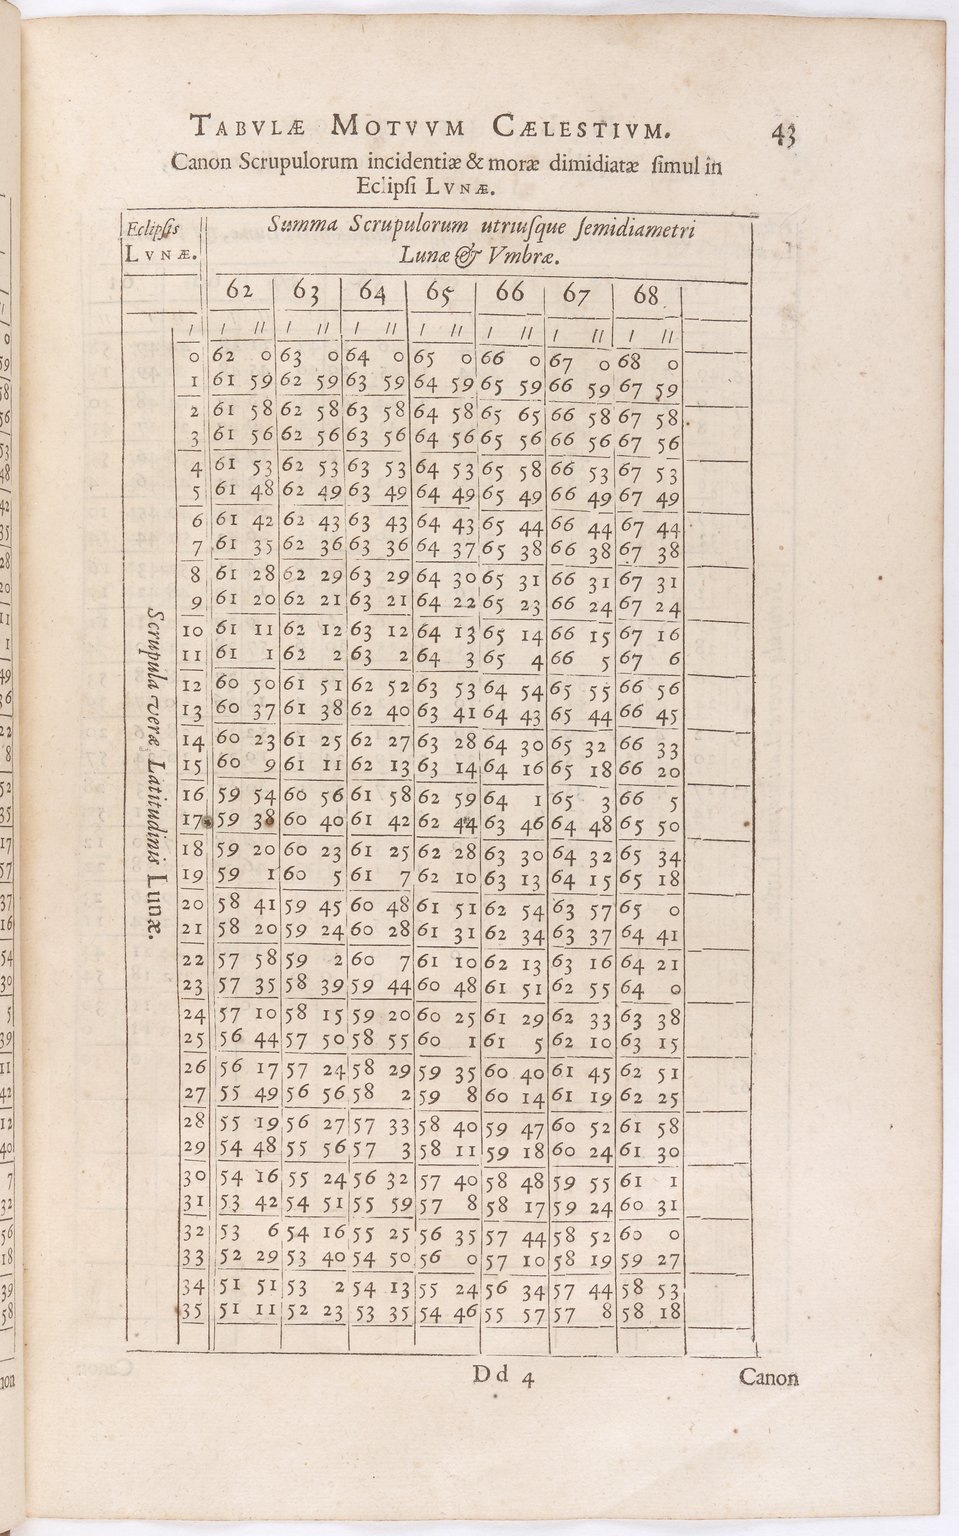 TABVLÆ MOTVVM CÆLESTIVM. 43
Canon Scrupulorum incidentiæ & moræ dimidiatæ simul in
Eclipsi LVNÆ.
Eclipsis Summa Scrupulorum utriusque semidiametri
LVNÆ. Lunæ & Vmbræ.
62 63 64 65 66 67 68
/ / // / // / // / // / // / // / //
0 62 0 63 0 64 0 65 0 66 0 67 0 68 0
1 61 59 62 59 63 59 64 59 65 59 66 59 67 59
2 61 58 62 58 63 58 64 58 65 65 66 58 67 58
3 61 56 62 56 63 56 64 56 65 56 66 56 67 56
4 61 53 62 53 63 53 64 53 65 58 66 53 67 53
5 61 48 62 49 63 49 64 49 65 49 66 49 67 49
6 61 42 62 43 63 43 64 43 65 44 66 44 67 44
7 61 35 62 36 63 36 64 37 65 38 66 38 67 38
8 61 28 62 29 63 29 64 30 65 31 66 31 67 31
9 61 20 62 21 63 21 64 22 65 23 66 24 67 24
10 61 11 62 12 63 12 64 13 65 14 66 15 67 16
11 61 1 62 2 63 2 64 3 65 4 66 5 67 6
12 60 50 61 51 62 52 63 53 64 54 65 55 66 56
13 60 37 61 38 62 40 63 41 64 43 65 44 66 45
14 60 23 61 25 62 27 63 28 64 30 65 32 66 33
15 60 9 61 11 62 13 63 14 64 16 65 18 66 20
16 59 54 60 56 61 58 62 59 64 1 65 3 66 5
17 59 38 60 40 61 42 62 44 63 46 64 48 65 50
18 59 20 60 23 61 25 62 28 63 30 64 32 65 34
19 59 1 60 5 61 7 62 10 63 13 64 15 65 18
20 58 41 59 45 60 48 61 51 62 54 63 57 65 0
21 58 20 59 24 60 28 61 31 62 34 63 37 64 41
22 57 58 59 2 60 7 61 10 62 13 63 16 64 21
23 57 35 58 39 59 44 60 48 61 51 62 55 64 0
24 57 10 58 15 59 20 60 25 61 29 62 33 63 38
25 56 44 57 50 58 55 60 1 61 5 62 10 63 15
26 56 17 57 24 58 29 59 35 60 40 61 45 62 51
27 55 49 56 56 58 2 59 8 60 14 61 19 62 25
28 55 19 56 27 57 33 58 40 59 47 60 52 61 58
29 54 48 55 56 57 3 58 11 59 18 60 24 61 30
30 54 16 55 24 56 32 57 40 58 48 59 55 61 1
31 53 42 54 51 55 59 57 8 58 17 59 24 60 31
32 53 6 54 16 55 25 56 35 57 44 58 52 60 0
33 52 29 53 40 54 50 56 0 57 10 58 19 59 27
34 51 51 53 2 54 13 55 24 56 34 57 44 58 53
35 51 11 52 23 53 35 54 46 55 57 57 8 58 18
Scrupula veræ Latitudinis Lunæ.
Dd 4 Canon